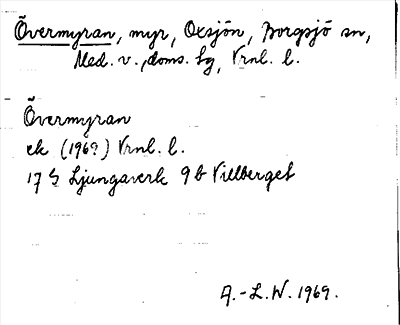 Övermyran, myr, Oxsjön, Borgsjö sn,
Med. v., doms. lg, Vrnl. l.
Övermyran
ek (1969) Vrnl. l.
17 G Ljungaverk 9 b Villberget
A.-L.W. 1969.